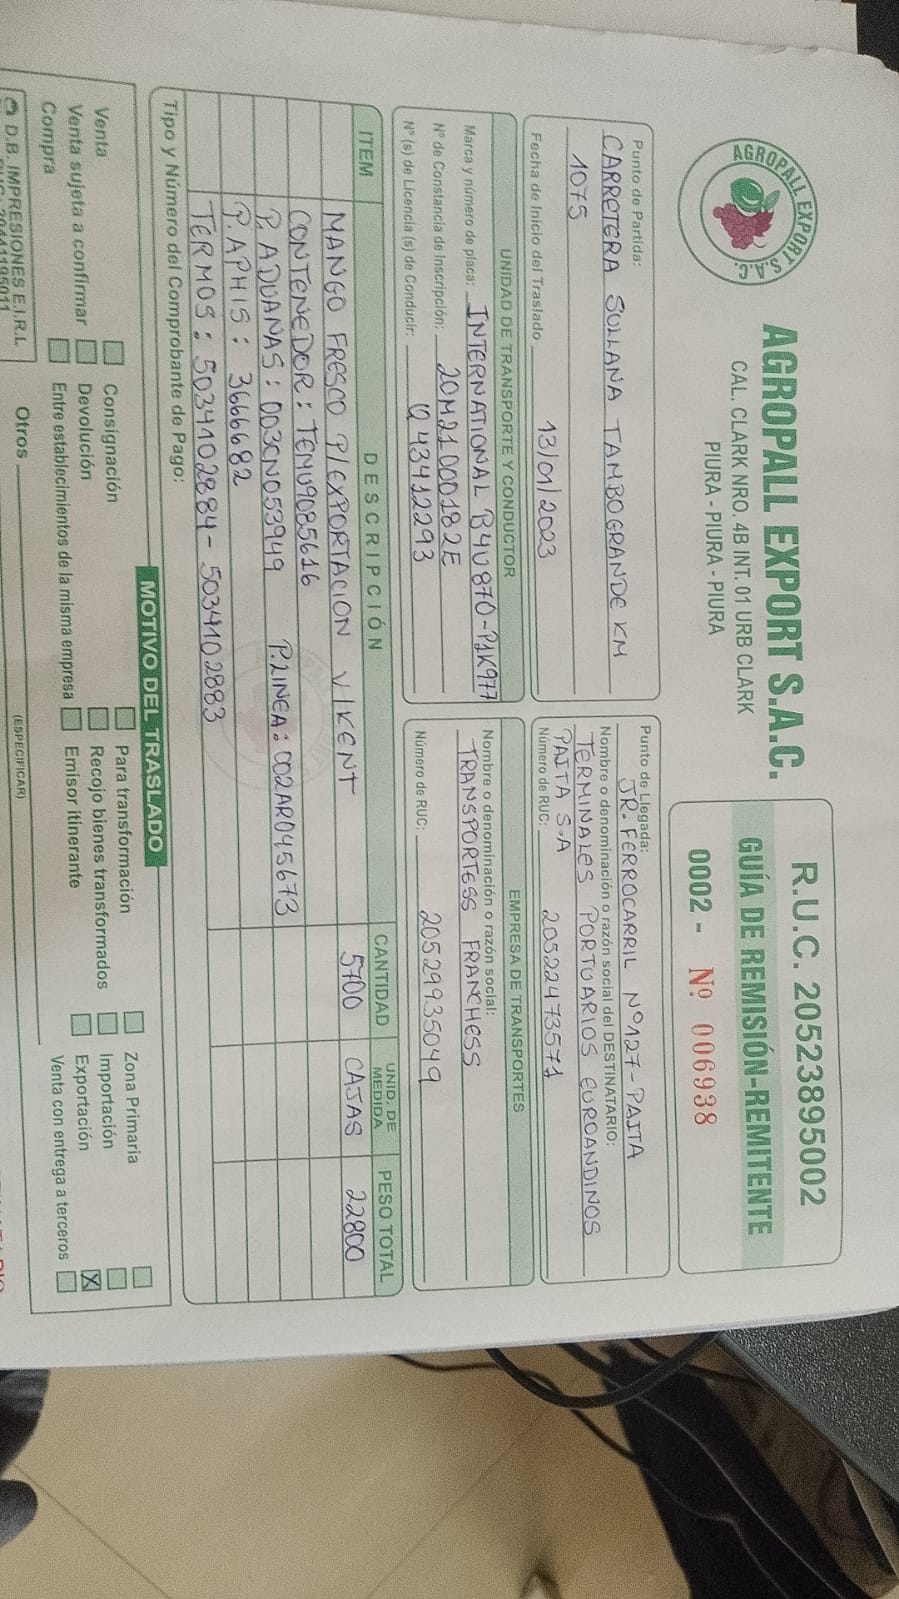 AGROPALL EXPORT S.A.C.
AGROPALL EXPORT S.A.C.
CAL. CLARK NRO. 4B INT. 01 URB CLARK
PIURA - PIURA - PIURA
R.U.C. 20523895002
GUÍA DE REMISIÓN-REMITENTE
0002 - Nº 006938
Punto de Partida:
CARRETERA SULLANA TAMBOGRANDE KM
1075
Fecha de Inicio del Traslado 13/01/2023
Punto de Llegada:
JR. FERROCARRIL Nº127-PAITA
Nombre o denominación o razón social del DESTINATARIO:
TERMINALES PORTUARIOS EUROANDINOS
PAITA S.A
Número de RUC: 20522473571
UNIDAD DE TRANSPORTE Y CONDUCTOR
Marca y número de placa: INTERNATIONAL B4U870-P1K977
Nº de Constancia de Inscripción: 20M21000182E
Nº (s) de Licencia (s) de Conducir: Q43412293
EMPRESA DE TRANSPORTES
Nombre o denominación o razón social:
TRANSPORTESS FRANCHESS
Número de RUC: 20529935049
ITEM DESCRIPCIÓN CANTIDAD UNID. DE MEDIDA PESO TOTAL
MANGO FRESCO P/EXPORTACION V/KENT 5700 CAJAS 22800
CONTENEDOR: TEMU9085616
P. ADUANAS: 003CN053949 P.LINEA: 002AR045673
P. APHIS: 3666682
TERMOS: 5034102884 - 5034102883
Tipo y Número del Comprobante de Pago:
MOTIVO DEL TRASLADO
Venta
Venta sujeta a confirmar
Compra
Consignación
Devolución
Entre establecimientos de la misma empresa
Para transformación
Recojo bienes transformados
Emisor itinerante
Zona Primaria
Importación
Exportación X
Venta con entrega a terceros
Otros
(ESPECIFICAR)
D.B. IMPRESIONES E.I.R.L.